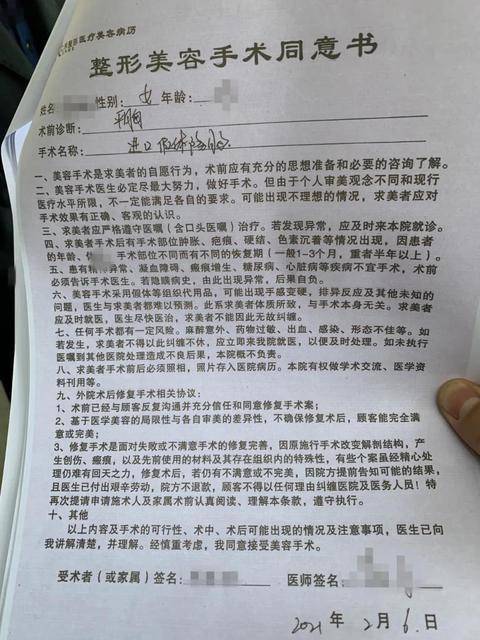 医疗美容病历
整形美容手术同意书
姓名 性别: 女 年龄:
术前诊断:
手术名称: 进口假体隆胸
一、美容手术是求美者的自愿行为，术前应有充分的思想准备和必要的咨询了解。
二、美容手术医生必定尽最大努力，做好手术。但由于个人审美观念不同和现行
医疗水平所限，不一定能满足各自的要求。可能出现不理想的情况，求美者应对
手术效果有正确、客观的认识。
三、求美者应严格遵守医嘱（含口头医嘱）治疗。若发现异常，应及时来本院就诊。
四、求美者手术后有手术部位肿胀、疤痕、硬结、色素沉着等情况出现，因患者
的年龄、体 手术部位不同而有不同的恢复期（一般1-3个月，重者半年以上）。
五、患有精神异常、凝血障碍、瘢痕增生、糖尿病、心脏病等疾病不宜手术，术前
必须告诉手术医生。若隐瞒病史，由此出现异常，后果自负。
六、美容手术采用假体等组织代用品，可能出现手感变硬，排异反应及其他未知的
问题，医生与求美者都难以预测。此系求美者体质所致，与手术本身无关。求美者
应及时就医，医生尽快医治，求美者不能因此无故纠缠。
七、任何手术都有一定风险。麻醉意外、药物过敏、出血、感染、形态不佳等。如
若发生，求美者不得以此纠缠不休，应立即来我院就医，以便及时处理。如未执行
医嘱到其他医院处理造成不良后果，本院概不负责。
八、求美者手术前后必须照相，照片存入医院病历。本院有权做学术交流、医学资
料刊用等。
九、外院术后修复手术相关协议:
1、术前已经与顾客反复沟通并充分信任和同意修复手术案;
2、基于医学美容的局限性与各自审美的差异性，不确保修复术后，顾客能完全满
意或完美;
3、修复手术是面对失败或不满意手术的修复完善，因原施行手术改变解剖结构，产
生创伤、瘢痕，以及先前使用的材料及其存在组织内的特殊性，有些个案虽经精心处
理仍难有回天之力，修复术后，若仍有不满意或不完美，因院方提前告知可能的结果，
且医生已付出艰辛劳动，院方不退款，顾客不得以任何理由纠缠医院及医务人员！特
再次提请申请施术人及家属术前认真阅读、理解本条款，遵守执行。
十、其他
以上内容及手术的可行性、术中、术后可能出现的情况及注意事项，医生已向
我讲解清楚，并理解。经慎重考虑，我同意接受美容手术。
受术者（或家属）签名: 医师签名:
2021 年 2 月 6 日